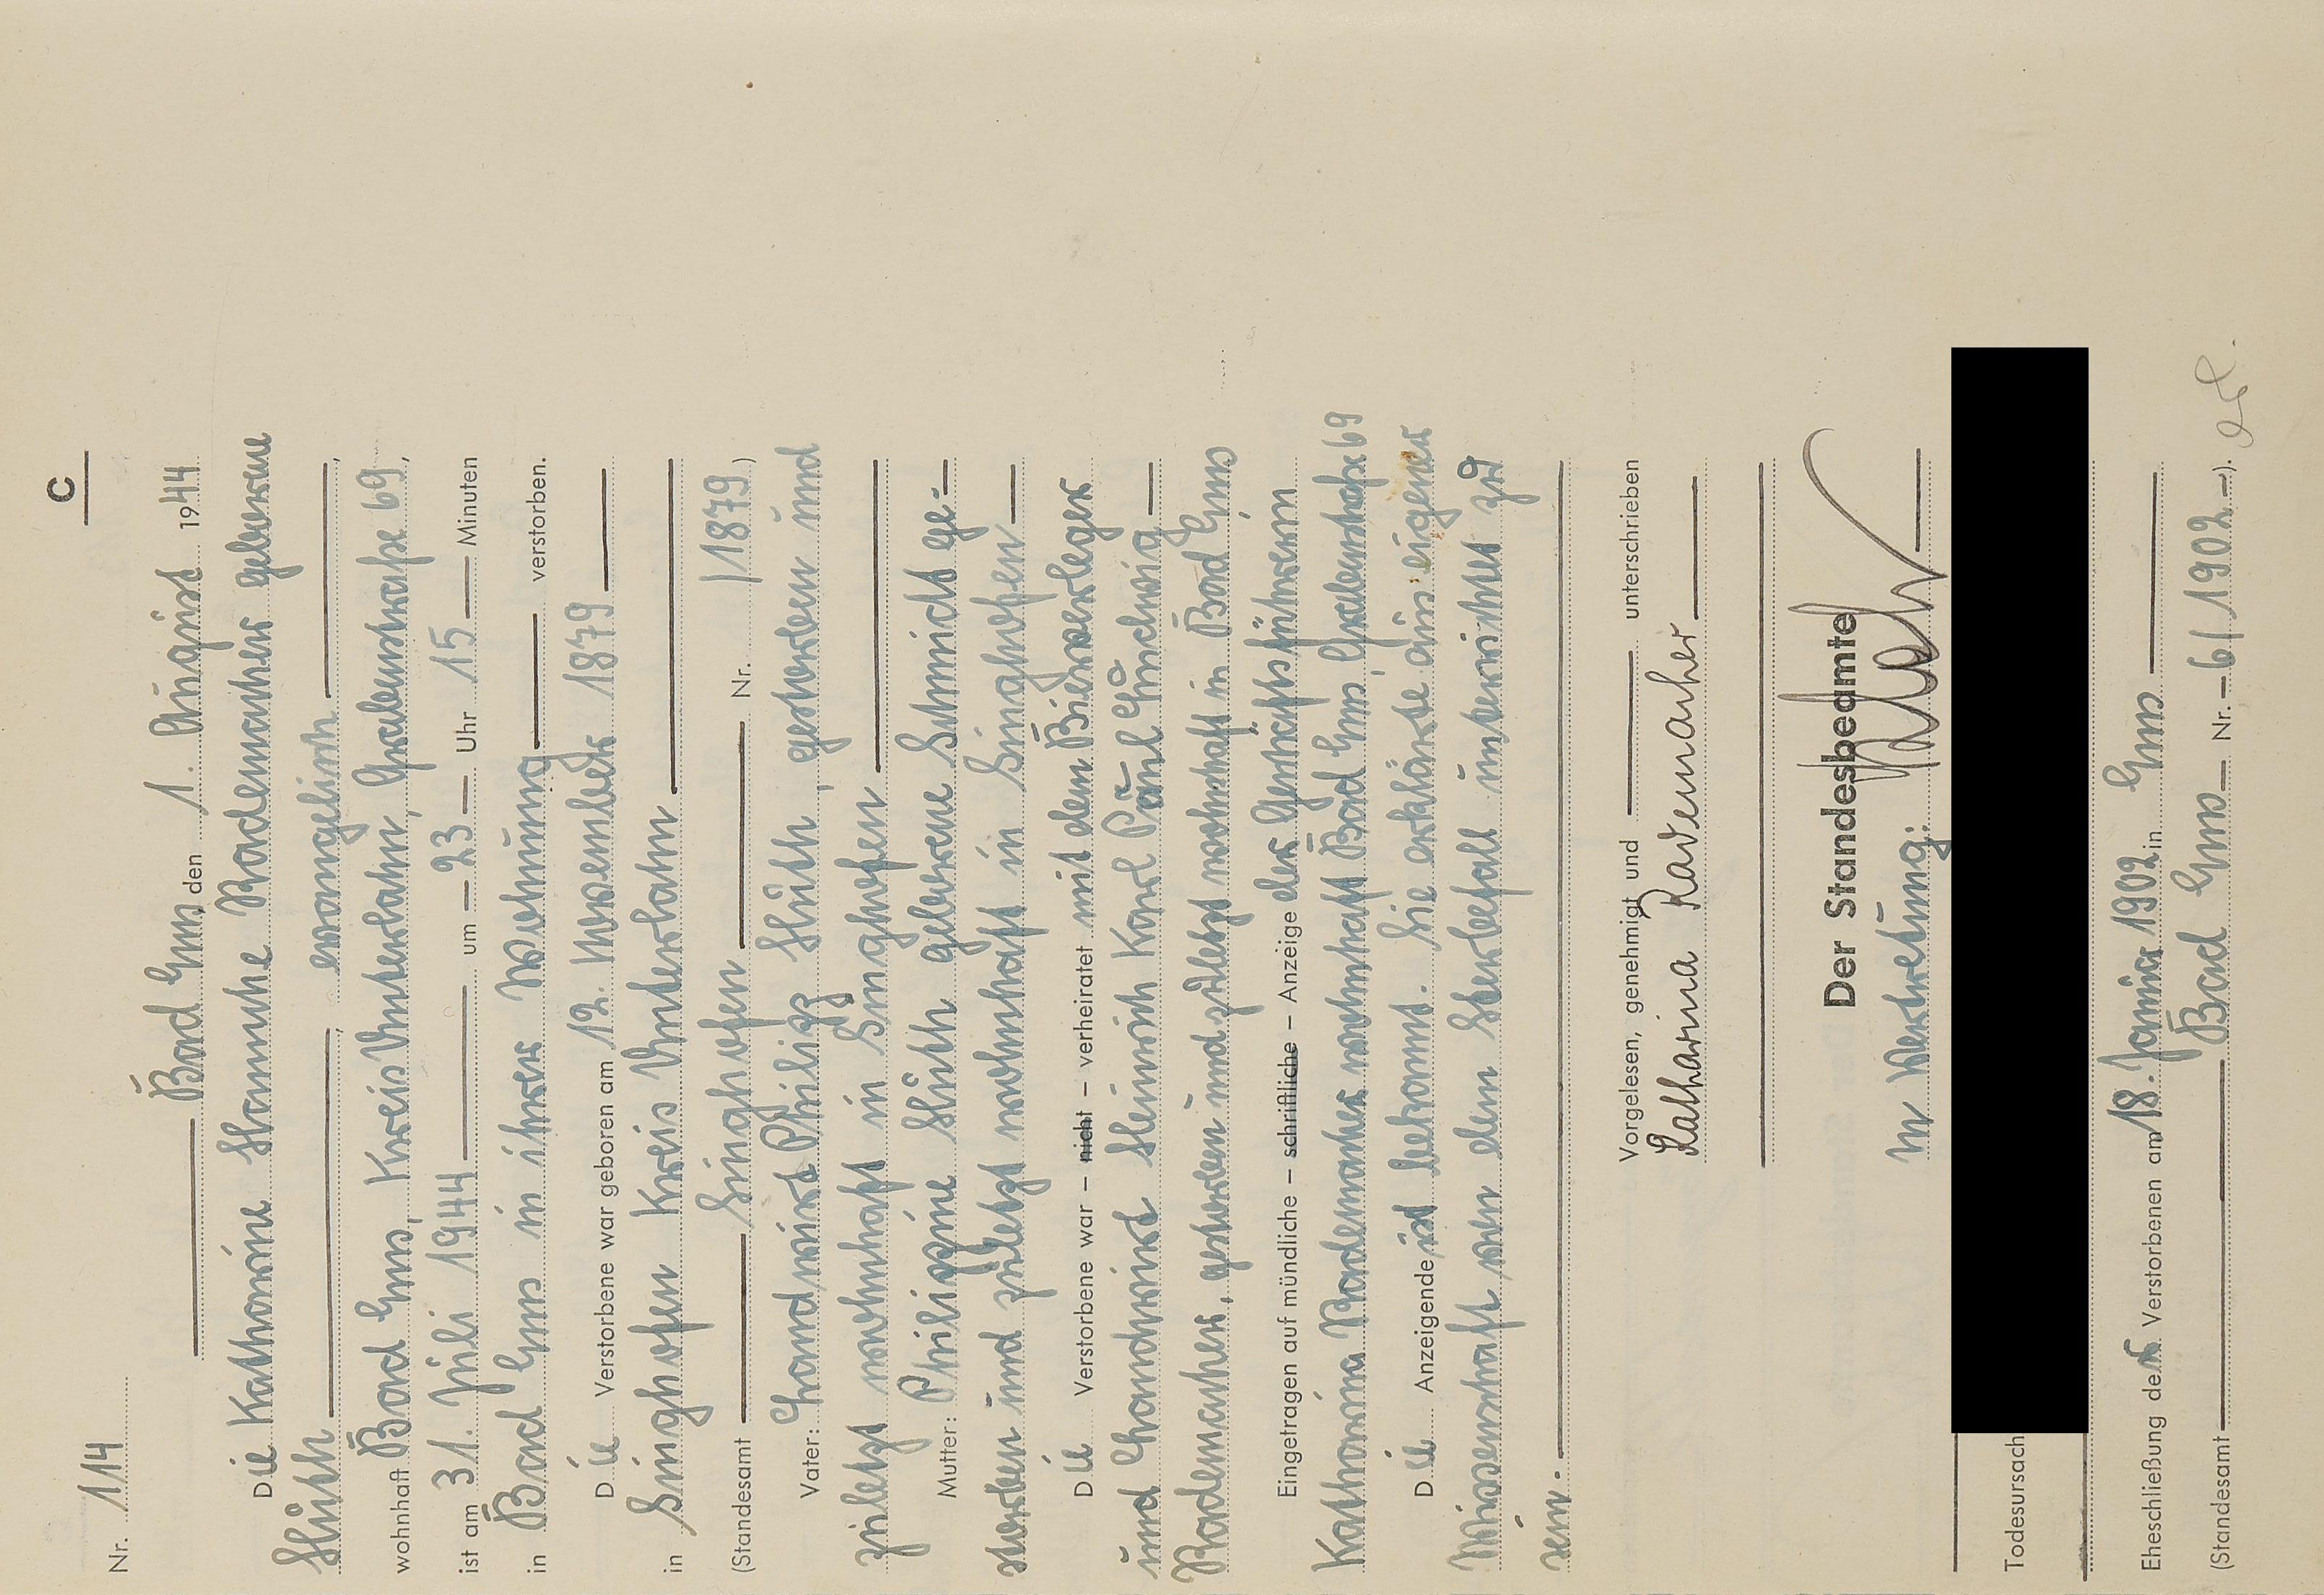 C
Nr. 114
Bad Ems, den 1. August 1944
Die Katharine Hannche Rademacher geborene
Huth evangelisch,
wohnhaft Bad Ems, Kreis Unterlahn, Grabenstraße 69,
ist am 31. Juli 1944 um 23 Uhr 15 Minuten
in Bad Ems in ihrer Wohnung verstorben.
Die Verstorbene war geboren am 12. November 1879
in Singhofen Kreis Unterlahn
(Standesamt Singhofen Nr. /1879)
Vater: Landwirt Philipp Huth, gestorben und
zuletzt wohnhaft in Singhofen
Mutter: Philippine Huth geborene Schmidt ge-
storben und zuletzt wohnhaft in Singhofen
Die Verstorbene war – nicht – verheiratet mit dem Bierverleger
und Landwirt Heinrich Karl Paul Ludwig
Rademacher, gestorben und zuletzt wohnhaft in Bad Ems
Eingetragen auf mündliche – schriftliche – Anzeige der Geschäftsführerin
Katharina Rademacher wohnhaft Bad Ems, Grabenstraße 69
Die Anzeigende ist bekannt. Sie erklärte aus eigener
Wissenschaft von dem Sterbefall unterrichtet zu
sein.
Vorgelesen, genehmigt und unterschrieben
Katharina Rademacher
Der Standesbeamte
In Vertretung:
Todesursach
Eheschließung der Verstorbenen am 18. Januar 1902 in Ems
(Standesamt Bad Ems Nr. 6/1902).